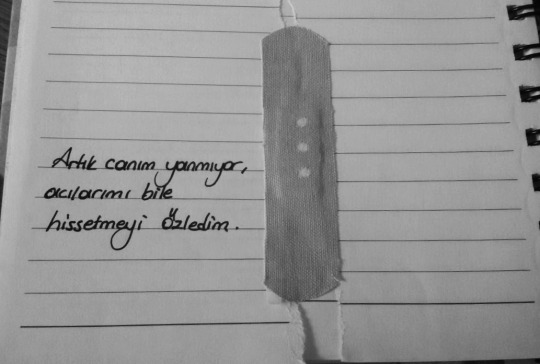 Artık canım yanmıyor,
acılarımı bile
hissetmeyi özledim.